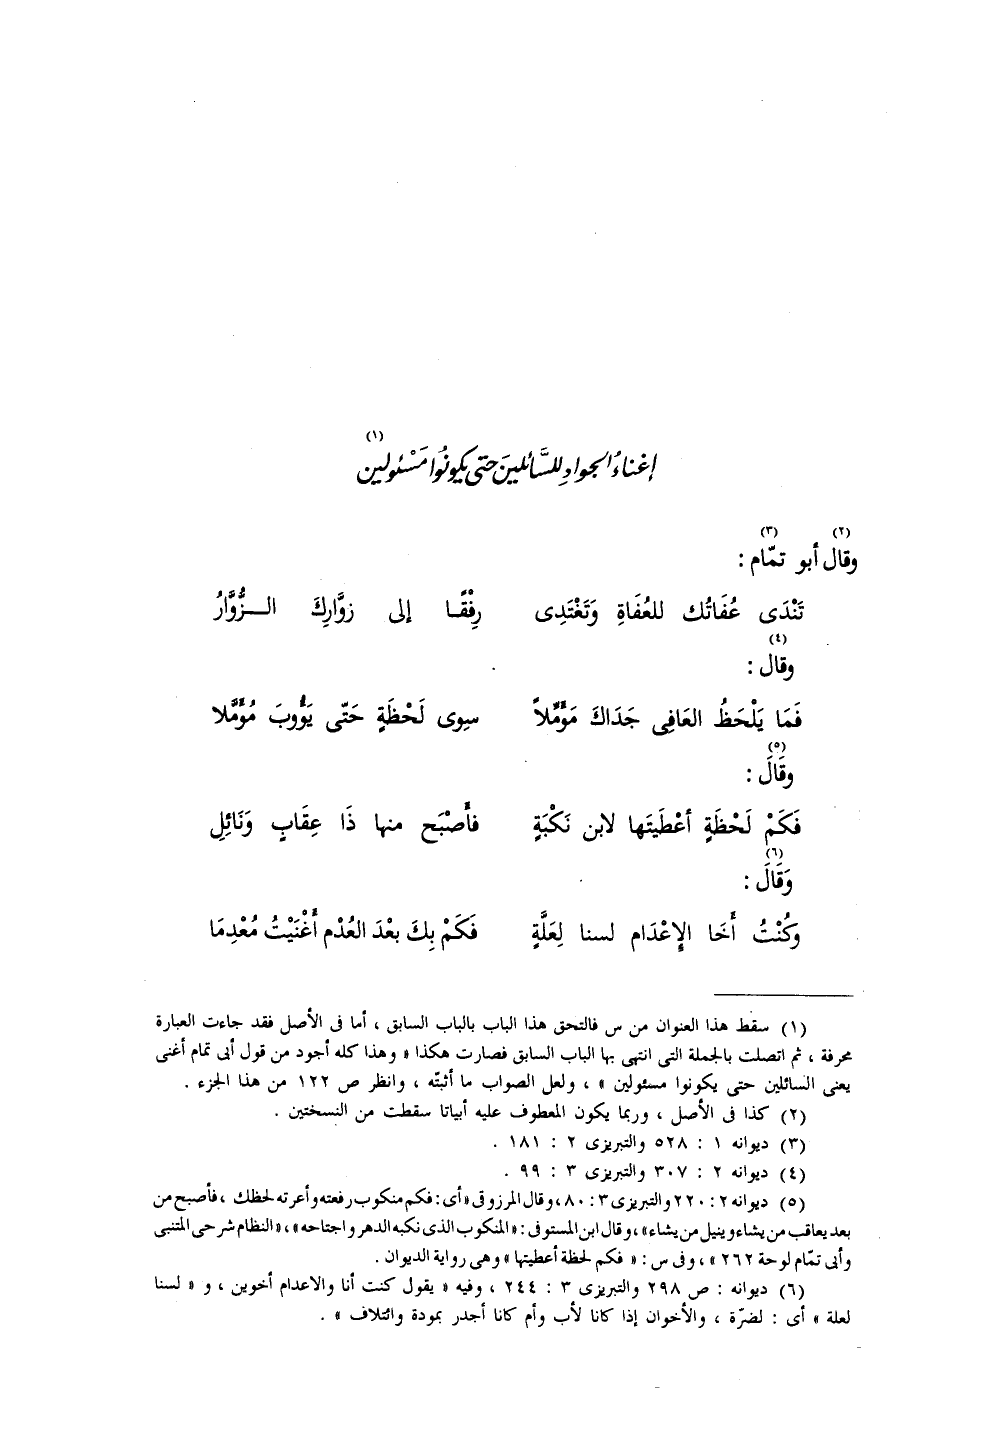 (١)
إغناءُ الجوادِ للسَّائلينَ حتى يكونُوا مَسْئولين
(٢) (٣)
وقال أبو تمّام :
تَنْدَى عُفَاتُك للعُفَاةِ وَتَغْتَدِى رِفْقًـا إلى زوَّارِكَ الـزُّوَّارُ
(٤)
وقال :
فَمَا يَلْحَظُ العَافِى جَدَاكَ مَؤَمِّلاً سِوى لَحْظَةٍ حَتّى يَؤُوبَ مُؤَمَّلا
(٥)
وقَالَ :
فَكَمْ لَحْظَةٍ أعْطَيتَها لابن نَكْبَةٍ فأَصْبَح منها ذَا عِقَابٍ وَنَائِلِ
(٦)
وَقَالَ :
وكُنْتُ أَخَا الإِعْدَام لسنا لِعَلَّةٍ فَكَمْ بِكَ بعْدَ العُدْم أَغْنَيْتُ مُعْدِمَا
(١) سقط هذا العنوان من س فالتحق هذا الباب بالباب السابق ، أما فى الأصل فقد جاءت العبارة
محرفة ، ثم اتصلت بالجملة التى انتهى بها الباب السابق فصارت هكذا « وهذا كله أجود من قول أبى تمام أغنى
يعنى السائلين حتى يكونوا مسئولين » ، ولعل الصواب ما أثبتّه ، وانظر ص ١٢٢ من هذا الجزء .
(٢) كذا فى الأصل ، وربما يكون المعطوف عليه أبياتا سقطت من النسختين .
(٣) ديوانه ١ : ٥٢٨ والتبريزى ٢ : ١٨١ .
(٤) ديوانه ٢ : ٣٠٧ والتبريزى ٣ : ٩٩ .
(٥) ديوانه ٢ : ٢٢٠ والتبريزى ٣ : ٨٠ ، وقال المرزوقى « أى : فكم منكوب رفعته وأعرته لحظك ، فأصبح من
بعد يعاقب من يشاء وينيل من يشاء » ، وقال ابن المستوفى : « المنكوب الذى نكبه الدهر واجتاحه » ، « النظام شرحى المتنبى
وأبى تمّام لوحة ٢٦٢ » ، وفى س : « فكم لحظة أعطيتها » وهى رواية الديوان .
(٦) ديوانه : ص ٢٩٨ والتبريزى ٣ : ٢٤٤ ، وفيه « يقول كنت أنا والاعدام أخوين ، و « لسنا
لعلة » أى : لضرّة ، والأخوان إذا كانا لأب وأم كانا أجدر بمودة وائتلاف » .